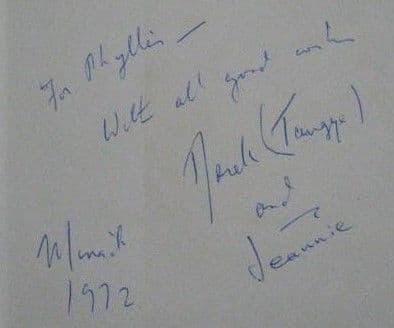 For Phyllis —
With all good wishes
Derek (Tangye)
and
Jeannie
Minack
1972